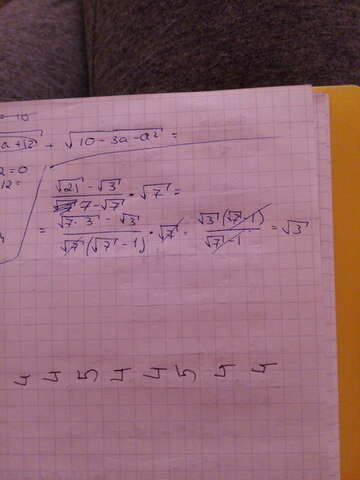 10
a + 12 + √(10 - 3a - a²) =
2 = 0
12 =
(√21 - √3)/(7 - √7) · √7 =
= (√7·3 - √3)/(√7(√7 - 1)) · √7 = (√3(√7 - 1))/(√7 - 1) = √3
4 4 5 4 4 5 4 4